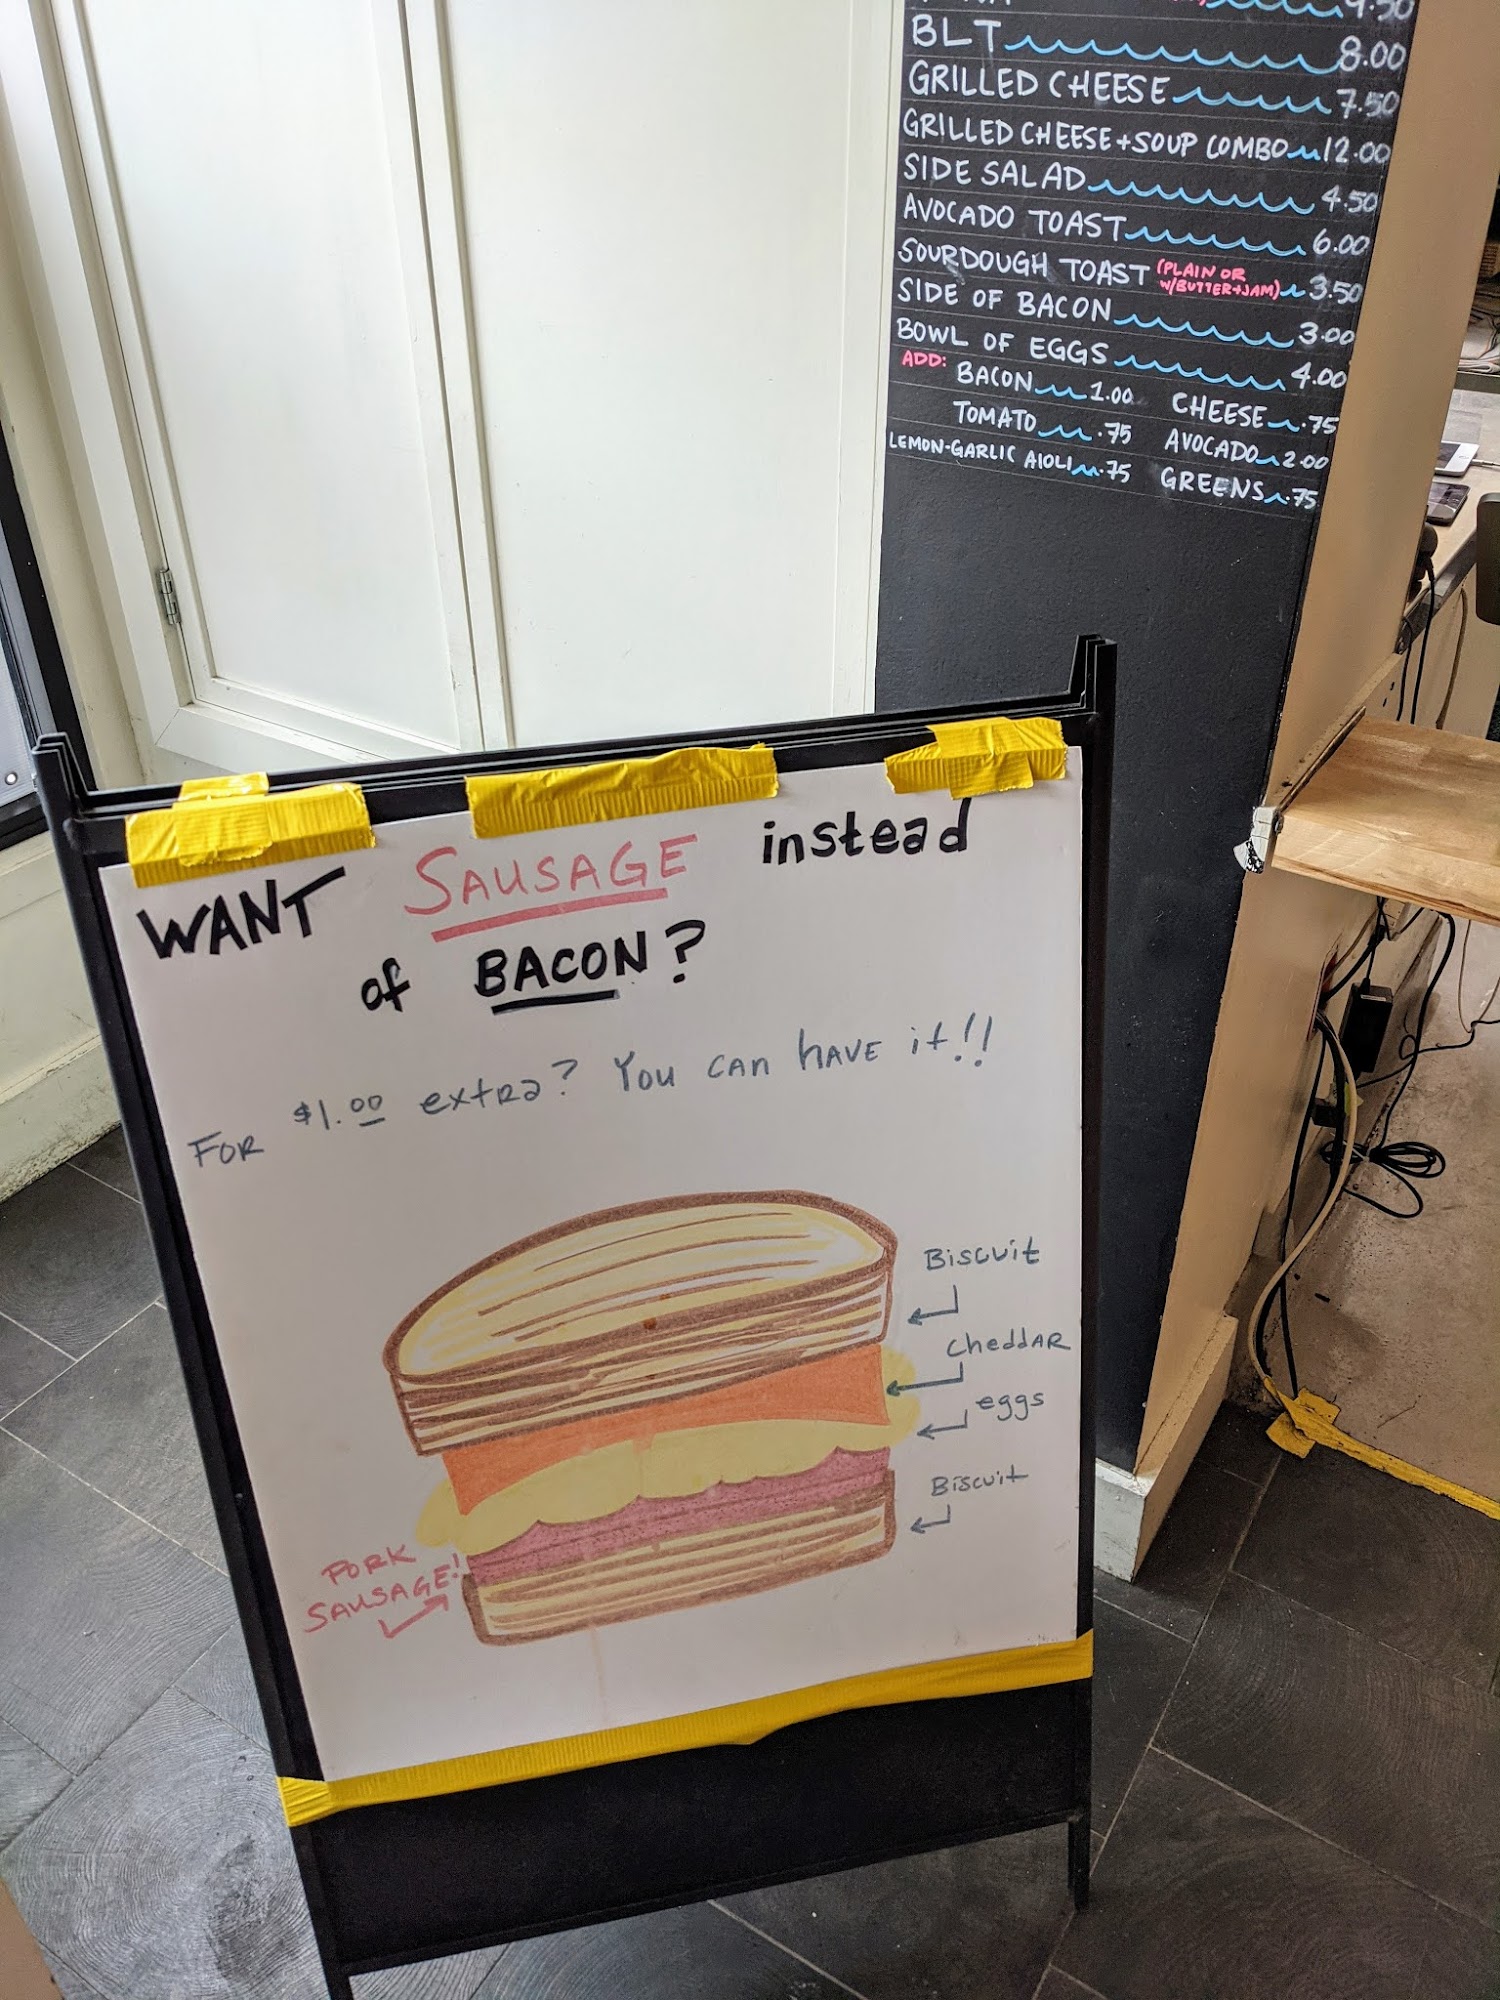 9.50
BLT 8.00
GRILLED CHEESE 7.50
GRILLED CHEESE + SOUP COMBO 12.00
SIDE SALAD 4.50
AVOCADO TOAST 6.00
SOURDOUGH TOAST (PLAIN OR W/BUTTER+JAM) 3.50
SIDE OF BACON 3.00
BOWL OF EGGS 4.00
ADD: BACON 1.00 CHEESE .75
TOMATO .75 AVOCADO 2.00
LEMON-GARLIC AIOLI .75 GREENS .75
WANT SAUSAGE instead
of BACON?
FOR $1.00 extra? You can have it!!
Biscuit
cheddar
eggs
Biscuit
PORK
SAUSAGE!